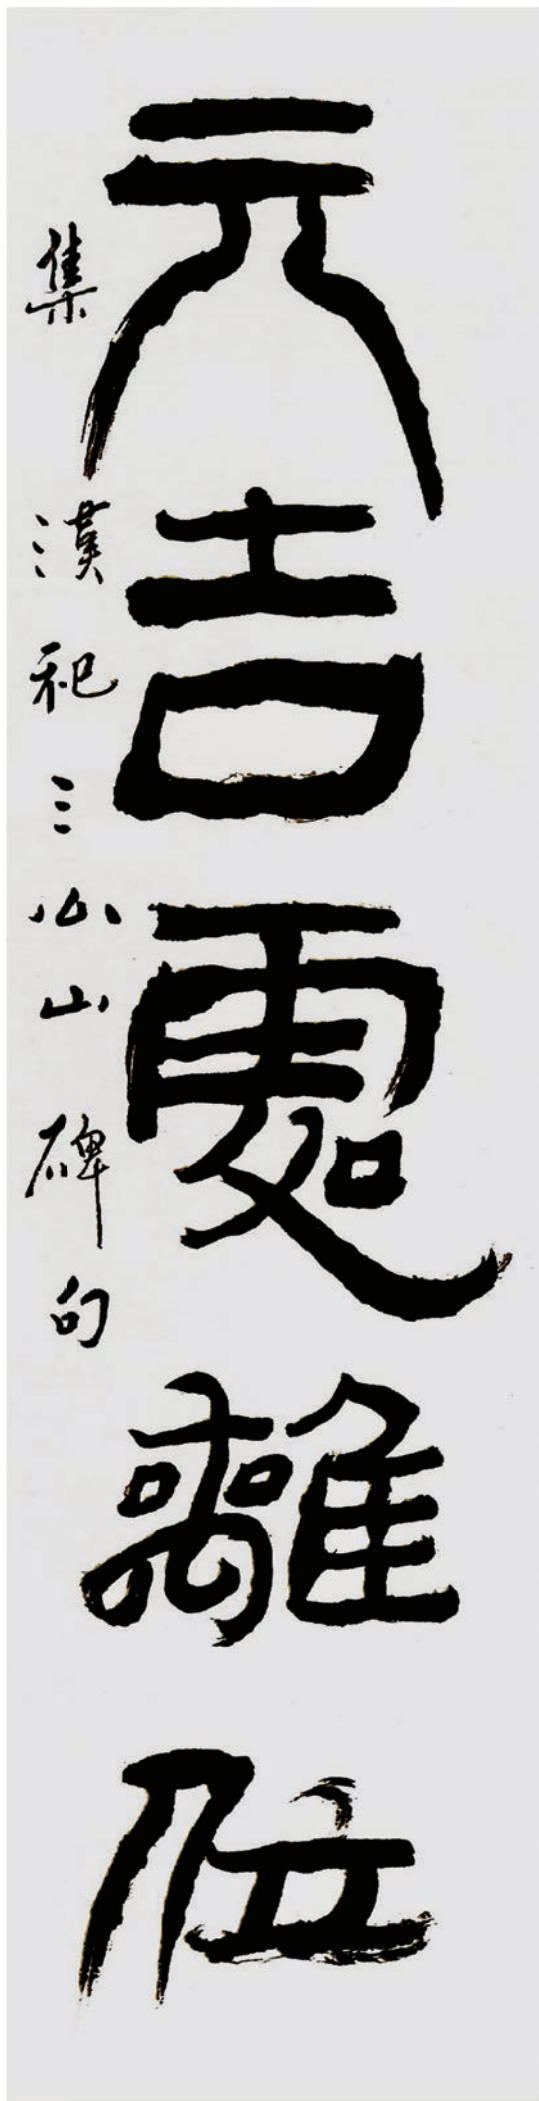 元吉處離位
集漢祀三公山碑句